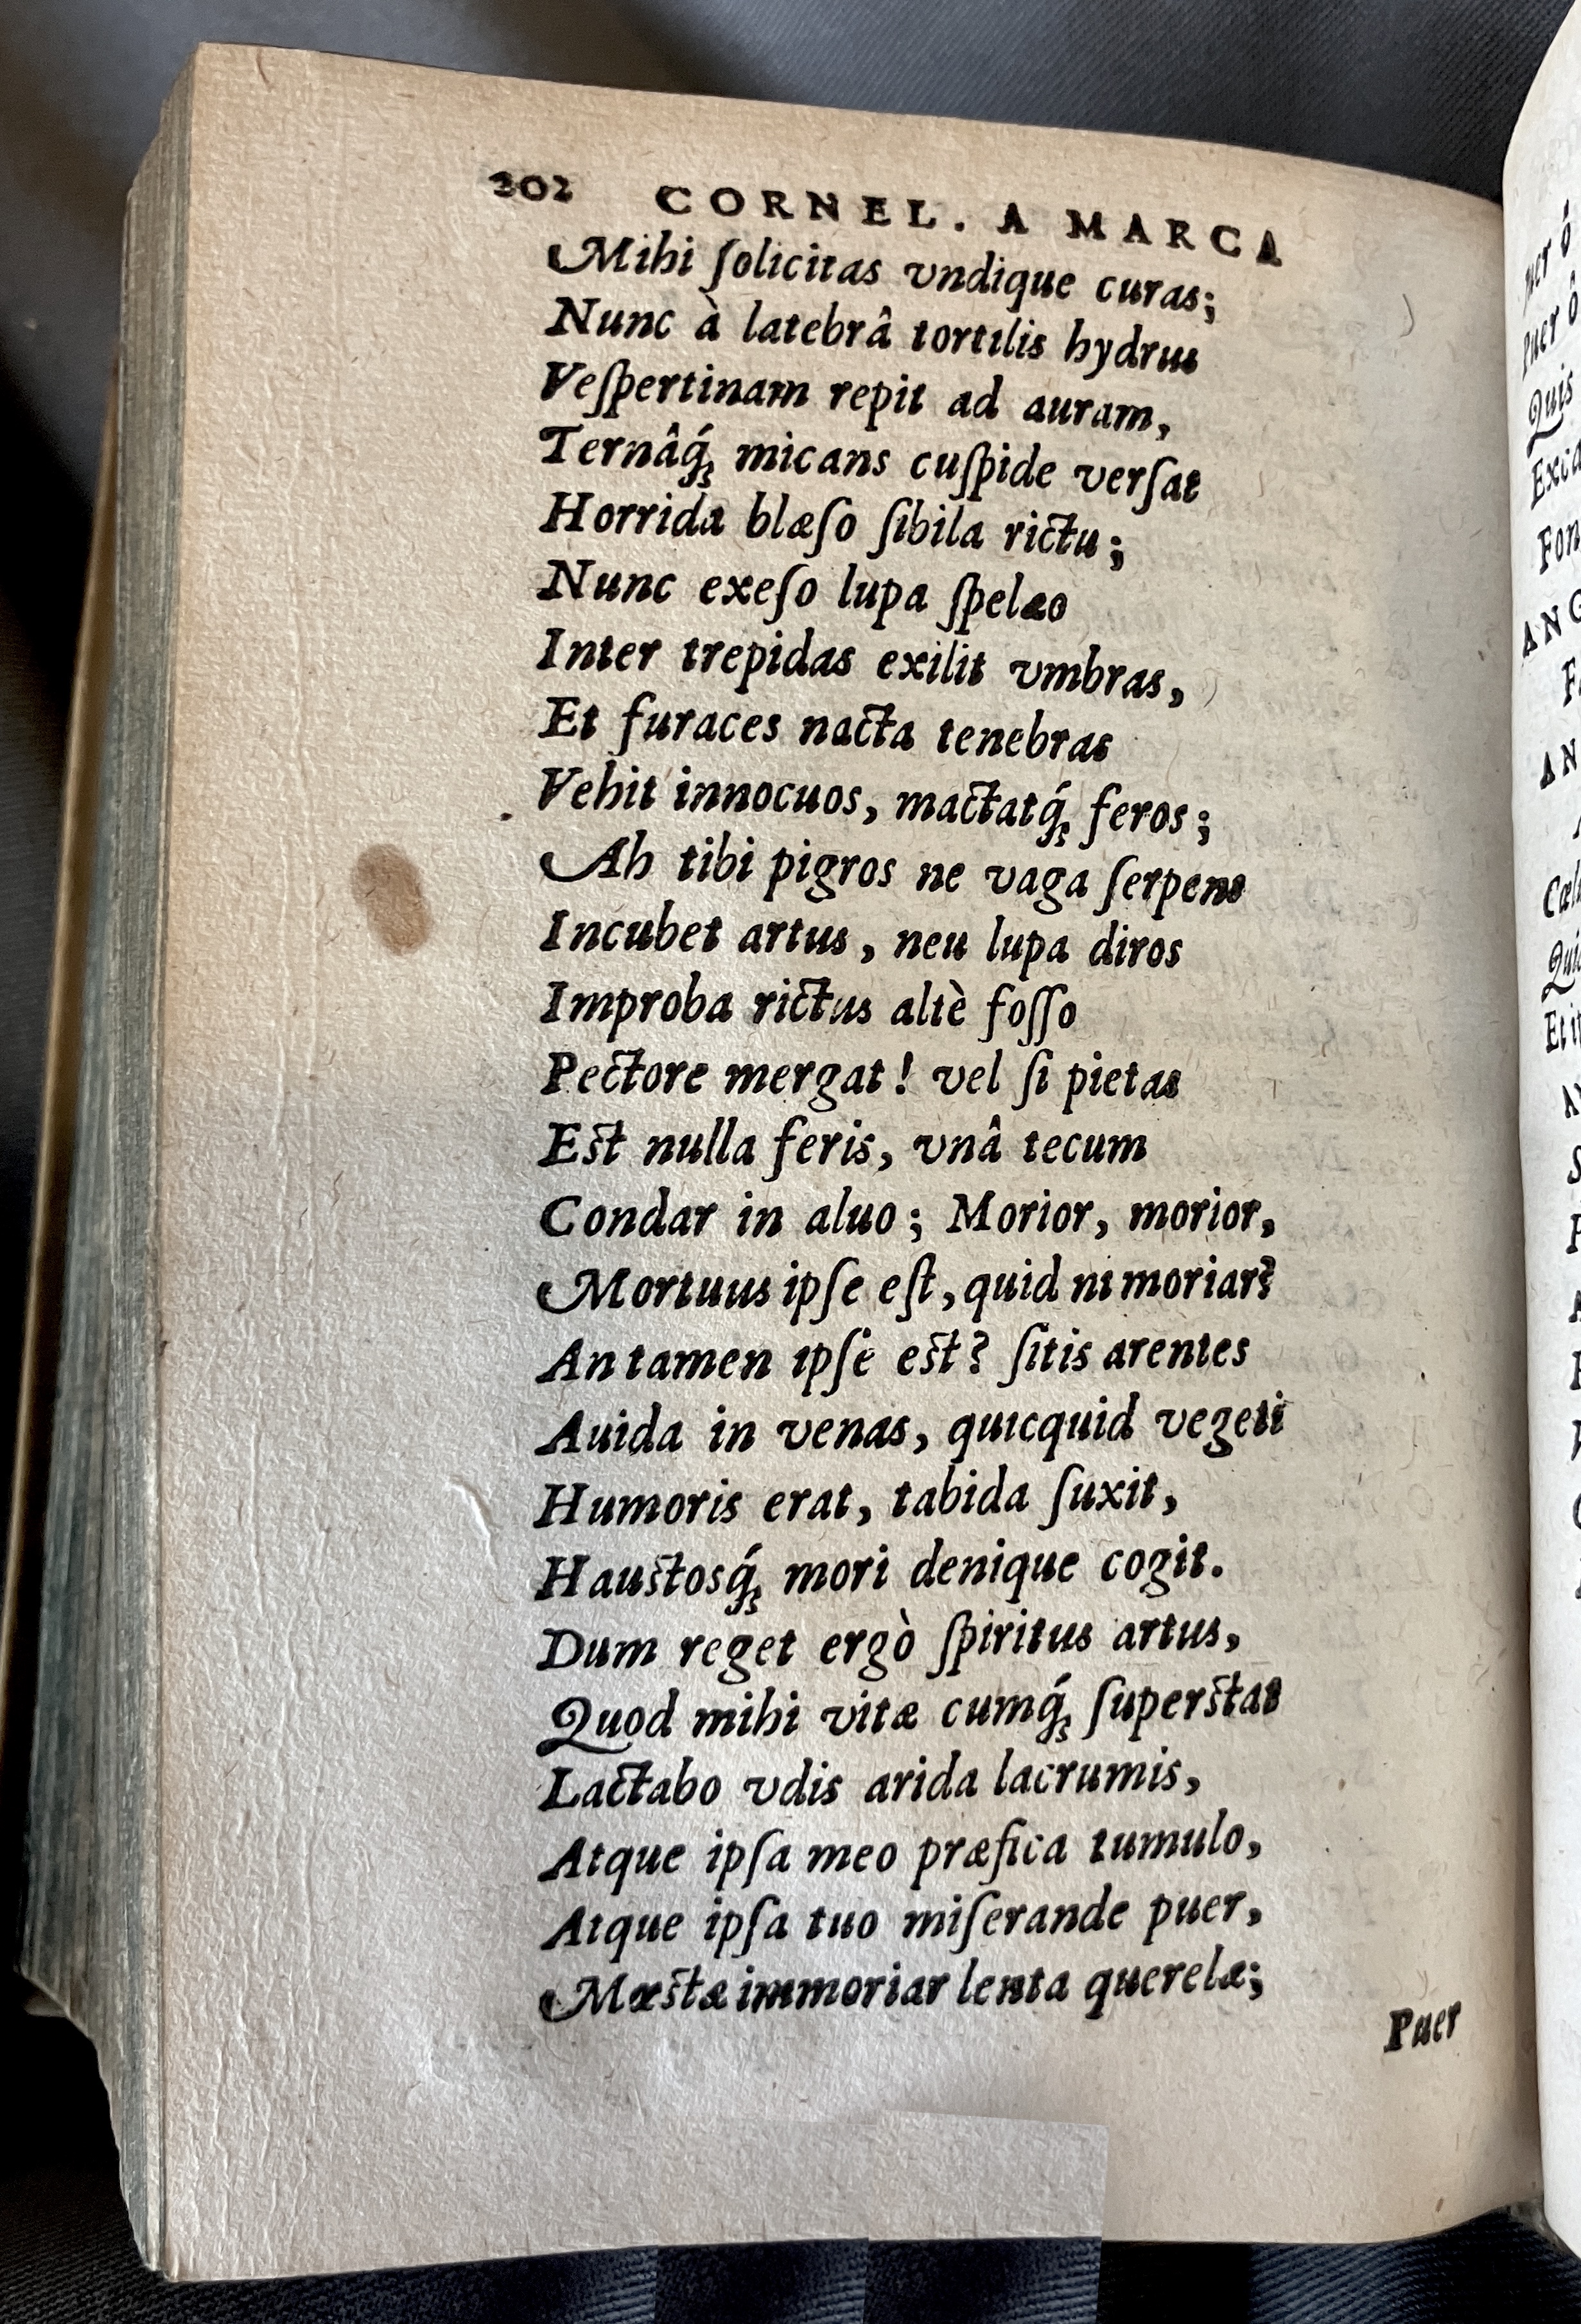 202 CORNEL. A MARCA
Mihi ſolicitas vndique curas;
Nunc à latebrâ tortilis hydrus
Veſpertinam repit ad auram,
Ternâq́ꝫ micans cuſpide verſat
Horrida blæſo ſibila rictu;
Nunc exeſo lupa ſpelæo
Inter trepidas exilit vmbras,
Et furaces nacta tenebras
Vehit innocuos, mactatq́ꝫ feros;
Ah tibi pigros ne vaga ſerpens
Incubet artus, neu lupa diros
Improba rictus altè foſſo
Pectore mergat! vel ſi pietas
Est nulla feris, vnâ tecum
Condar in aluo; Morior, morior,
Mortuus ipſe eſt, quid ni moriar?
An tamen ipſe est? ſitis arentes
Auida in venas, quicquid vegeti
Humoris erat, tabida ſuxit,
Haustosq́ꝫ mori denique cogit.
Dum reget ergò ſpiritus artus,
Quod mihi vitæ cumq́ꝫ ſuperstat
Lactabo vdis arida lacrumis,
Atque ipſa meo præfica tumulo,
Atque ipſa tuo miſerande puer,
Mæstæ immoriar lenta querelæ;
Puer
puer ô
Quis
Fon